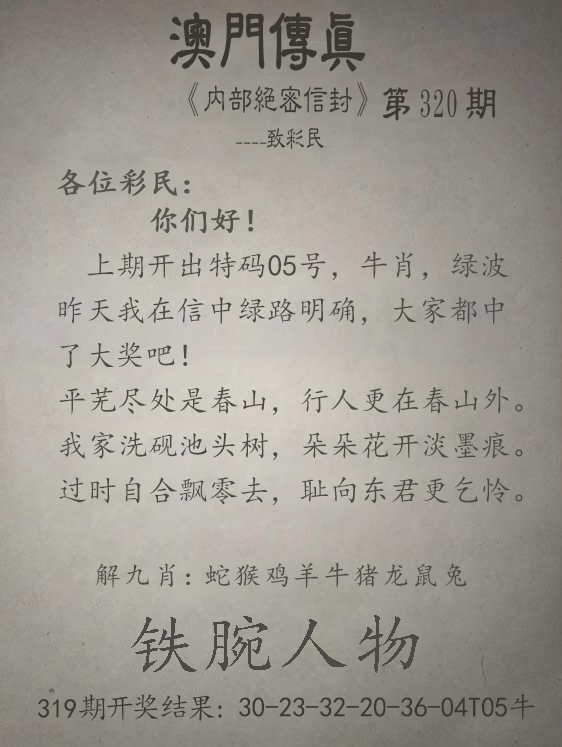 澳門傳眞
《内部絕密信封》第320期
----致彩民
各位彩民：
你们好！
上期开出特码05号，牛肖，绿波
昨天我在信中绿路明确，大家都中
了大奖吧！
平芜尽处是春山，行人更在春山外。
我家洗砚池头树，朵朵花开淡墨痕。
过时自合飘零去，耻向东君更乞怜。
解九肖：蛇猴鸡羊牛猪龙鼠兔
铁腕人物
319期开奖结果：30-23-32-20-36-04T05牛